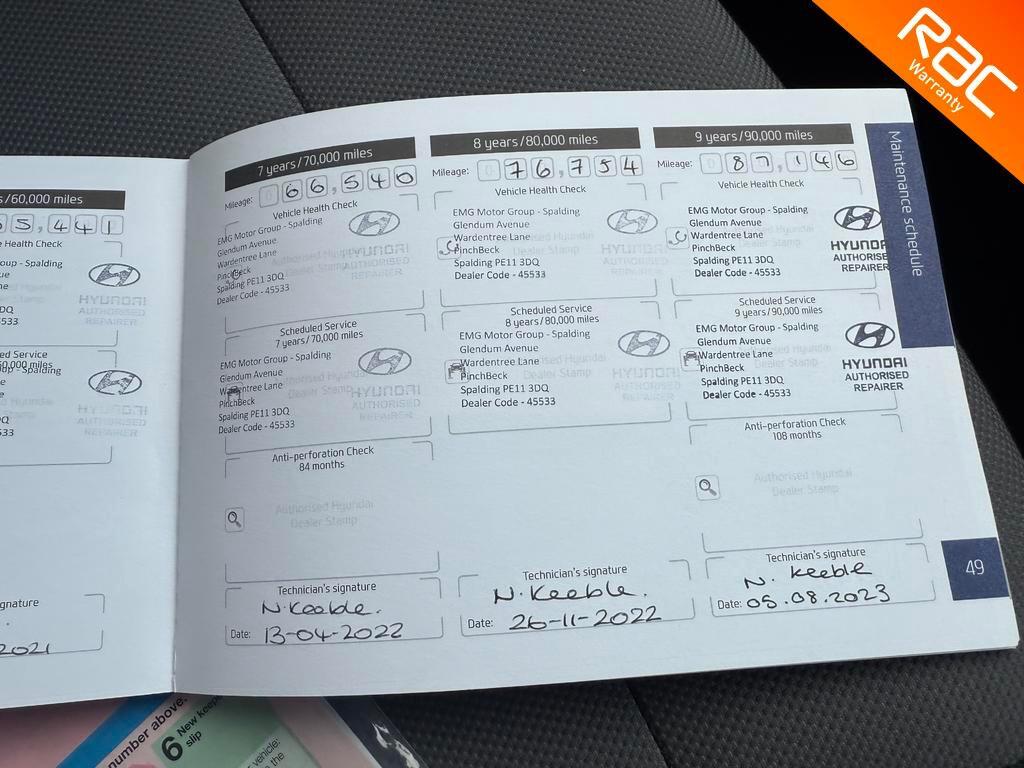 RAC
Warranty
/60,000 miles
5,441
Health Check
oup - Spalding
ue
ne
DQ
533
HYUNDAI
AUTHORISED
REPAIRER
ed Service
60,000 miles
oup - Spalding
ue
DQ
533
HYUNDAI
AUTHORISED
REPAIRER
gnature
2021
7 years/70,000 miles
Mileage: 066,540
Vehicle Health Check
EMG Motor Group - Spalding
Glendum Avenue
Wardentree Lane
PinchBeck
Spalding PE11 3DQ
Dealer Code - 45533
HYUNDAI
AUTHORISED
REPAIRER
Scheduled Service
7 years/70,000 miles
EMG Motor Group - Spalding
Glendum Avenue
Wardentree Lane
PinchBeck
Spalding PE11 3DQ
Dealer Code - 45533
HYUNDAI
AUTHORISED
REPAIRER
Anti-perforation Check
84 months
Authorised Hyundai
Dealer Stamp
Technician's signature
N. Keeble.
Date: 13-04-2022
8 years/80,000 miles
Mileage: 076,754
Vehicle Health Check
EMG Motor Group - Spalding
Glendum Avenue
Wardentree Lane
PinchBeck
Spalding PE11 3DQ
Dealer Code - 45533
Authorised Hyundai
Dealer Stamp
HYUNDAI
AUTHORISED
REPAIRER
Scheduled Service
8 years/80,000 miles
EMG Motor Group - Spalding
Glendum Avenue
Wardentree Lane
PinchBeck
Spalding PE11 3DQ
Dealer Code - 45533
Authorised Hyundai
Dealer Stamp
HYUNDAI
AUTHORISED
REPAIRER
Technician's signature
N. Keeble.
Date: 26-11-2022
9 years/90,000 miles
Mileage: 087,146
Vehicle Health Check
EMG Motor Group - Spalding
Glendum Avenue
Wardentree Lane
PinchBeck
Spalding PE11 3DQ
Dealer Code - 45533
HYUNDAI
AUTHORISED
REPAIRER
Scheduled Service
9 years/90,000 miles
EMG Motor Group - Spalding
Glendum Avenue
Wardentree Lane
PinchBeck
Spalding PE11 3DQ
Dealer Code - 45533
HYUNDAI
AUTHORISED
REPAIRER
Anti-perforation Check
108 months
Authorised Hyundai
Dealer Stamp
Technician's signature
N. Keeble
Date: 05.08.2023
Maintenance schedule
49
number above.
6 New keep
slip
vehicle:
the